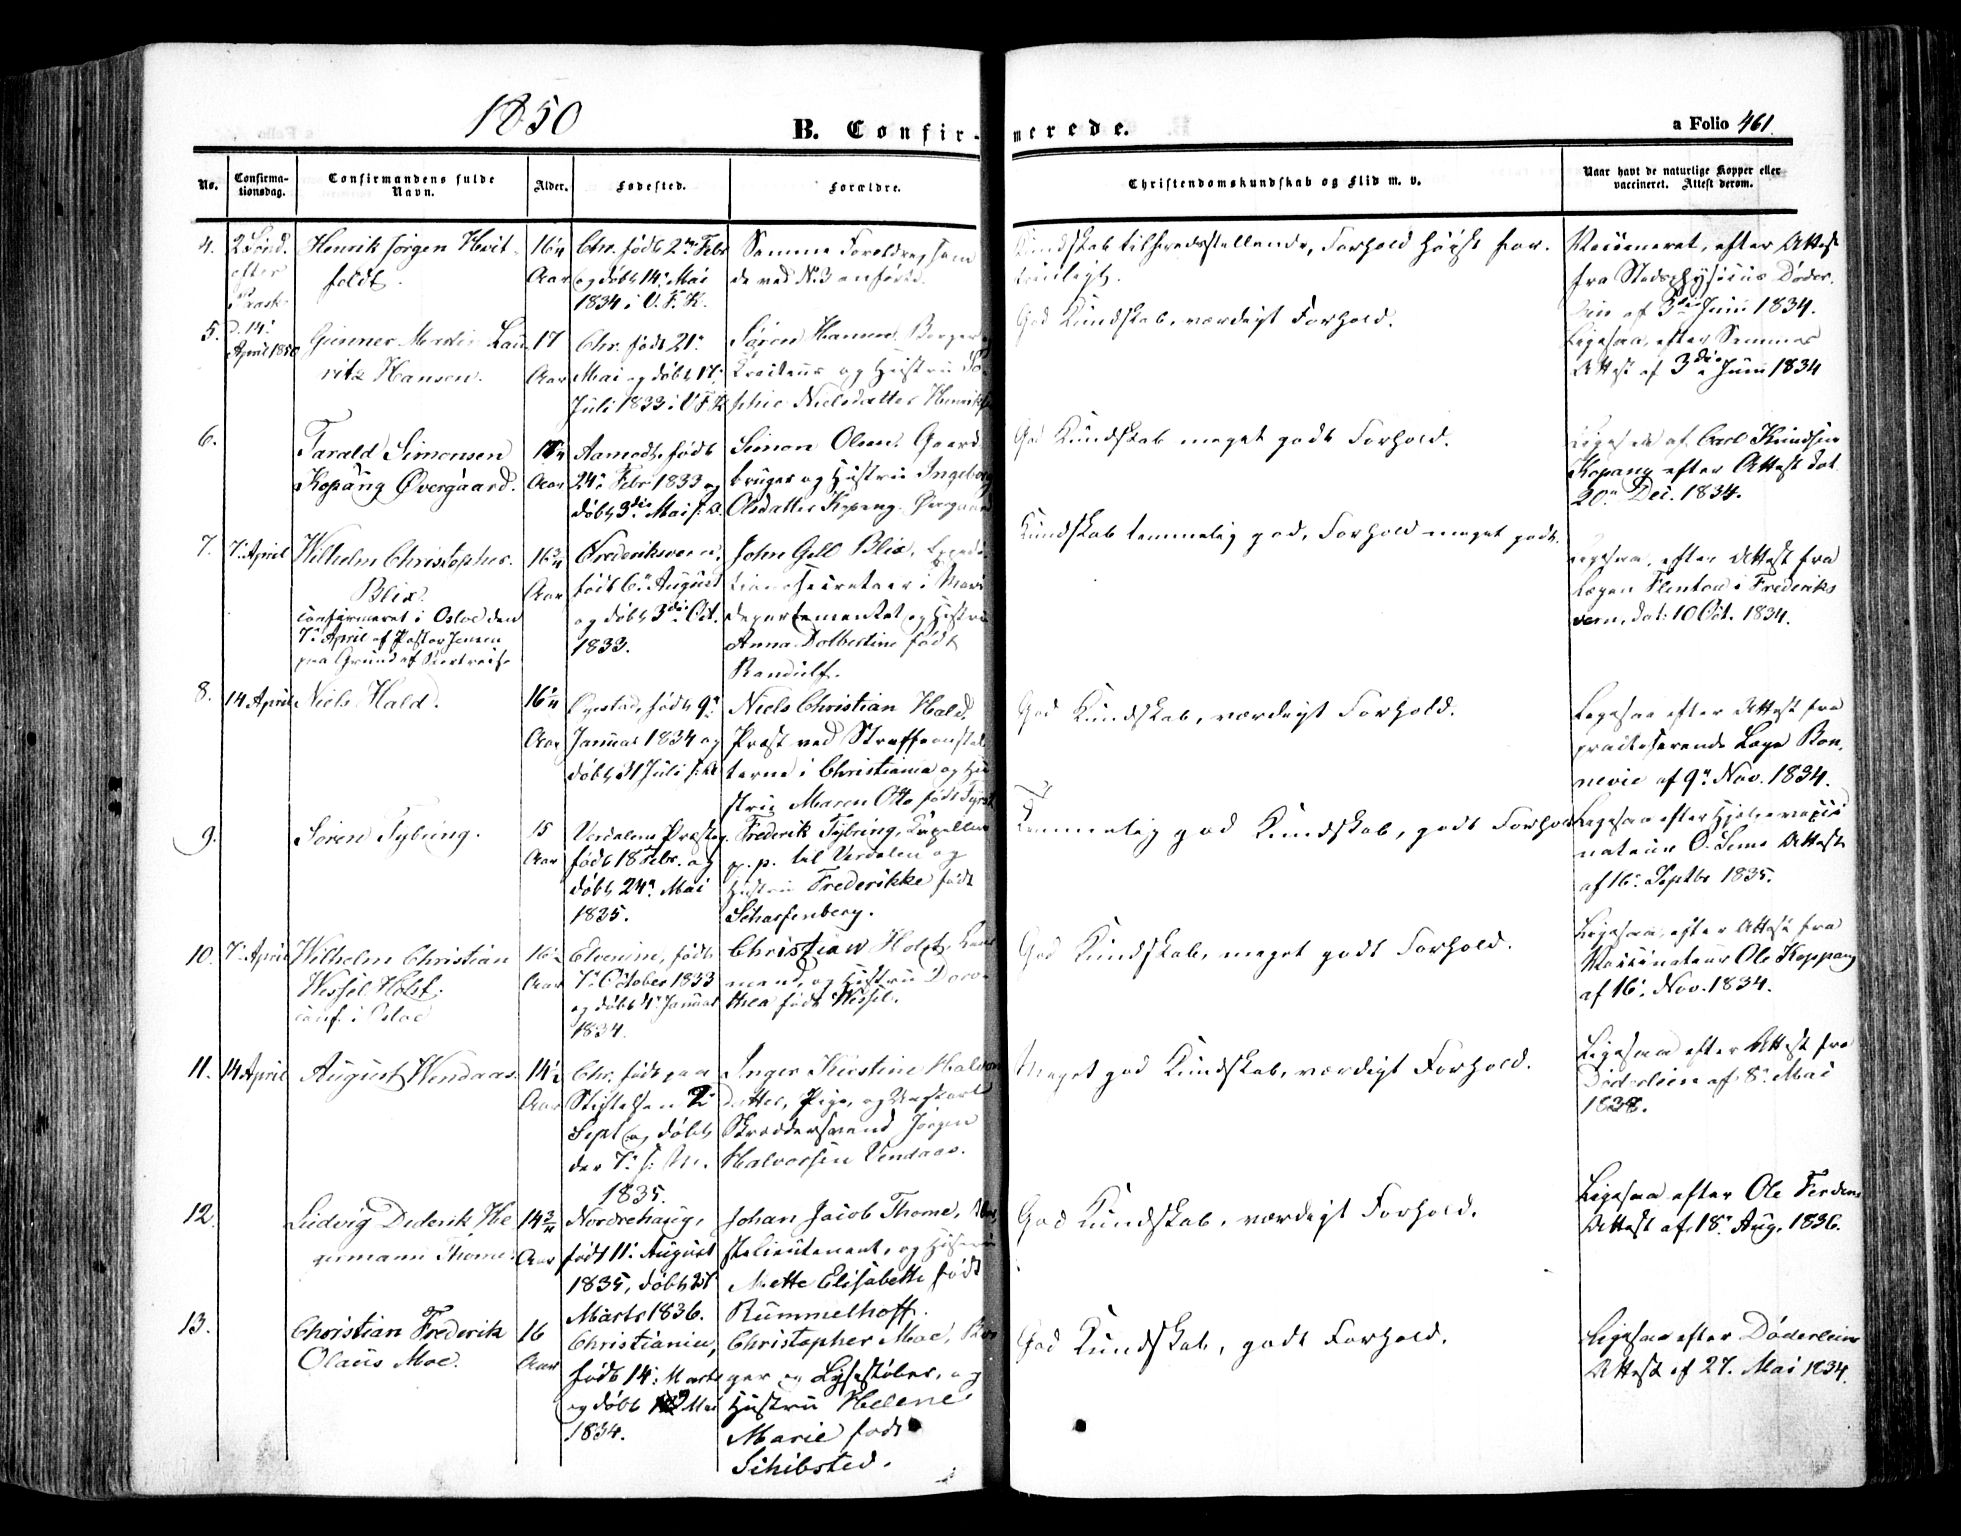 1850
B. Confirmerede.
a Folio 461
No.
Confirmationsdag.
Confirmandens fulde Navn.
Alder.
Fødested.
Forældre.
Christendomskundskab og Flid m. v.
Naar havt de naturlige Kopper eller vaccineret. Attest derom.
4.
2 Sønd. efter Paask. d. 14. April 1850
Henrik Jörgen Hvitfeldt.
16 1/4 Aar
Chr. født 2den Febr
og døbt 14. Mai
1834 i V. F. K.
Samme Forældre, som
de ved N. 3 anførte.
Kundskab tilfredsstillende, Forhold høist for-
Vaccineret, efter Attest
fra Stadsphysicus Døder-
lein af 3die Juni 1834.
5.
Gunner Martin Lau-
ritz Hansen.
17 Aar
Chr. født 21.
Mai og døbt 17.
Juli 1833 i V F K
Søren Hansen, Borger
og Hustru So-
phie Nielsdatter
God Kundskab, værdigt Forhold.
Ligesaa, efter Sammes
Attest af 3die Juni 1834
6.
Tarald Simonsen
Kopang Øvergaard.
Aar
Aamodt, født
24. Febr 1833 og
døbt 3die Mai s. A.
Simon Olsen, Gaard-
bruger og Hustru Ingeborg
Olsdatter Kopang Øvergaard
God Kundskab meget godt Forhold.
Ligesaa af Carl Knudsen
Kopang efter Attest dat.
20. Dec. 1834.
7.
7. April
Wilhelm Christopher
Blix.
confirmeret i Osloe den
7. April af Pastor Jensen
paa Grund af Bortreise
16 3/4 Aar
Frederiksværn,
født 6. August
og døbt 3die Oct.
1833.
John Gell Blix,
departementet og Hustru
Anna Dolbertine født
Randulf.
Kundskab temmelig god, Forhold meget godt.
Ligesaa, efter Attest fra
Lægen Flenton i Frederiks-
værn, dat. 10 Oct. 1834.
8.
14 April
Niels Hald.
16 1/4 Aar
Øiestad, født 9.
Januar 1834 og
døbt 31 Juli s. A
Niels Christian Hald,
Præst ved Straffeanstal-
terne i Christiania og Hu-
stru Maren Otto født
God Kundskab, værdigt Forhold.
Ligesaa efter Attest fra
practiserende Læge Bon-
nevie af 9. Nov. 1834.
9.
Sören Tybring.
15 Aar
Verdalens Præsteg.
født 18 Febr. og
døbt 24. Mai
1835.
Frederik Tybring, Capellan
p. p. til Verdalen og
Hustru Frederikke født
Scharfenberg.
Temmelig god Kundskab, godt Forhold
Ligesaa efter Hjelpevacci-
nateur O. Sems Attest
af 16. Septbr 1835.
10.
7. April
Wilhelm Christian
Wessel Holst.
conf. i Osloe
16 1/2 Aar
Elverum, født
7. October 1833
og døbt 4. Januar
1834.
Christian Holst, Lens-
mand, og Hustru Doro-
thea født Wessel.
God Kundskab, meget godt Forhold.
Ligesaa, efter Attest fra
Vaccinateur Ole Koppang
af 16. Nov. 1834.
11.
14 April
August Wendaas.
14 1/2 Aar
Chr. født paa
Stiftelsen 2
Sept og døbt
den 7. s. M.
1835.
Inger Kirstine Halvors-
datter, Pige, og
Skreddersvend Jörgen
Halvorsen Vendaas.
Meget god Kundskab, værdigt Forhold.
Ligesaa efter Attest fra
Döderlein af 8. Mai
1838.
12.
Ludvig Diderik He-
germann Thome.
14 3/4 Aar
Norderhaug,
født 11. August
1835, døbt 27
Marts 1836.
Johan Jacob Thome,
Hustru
Mette Elisabeth født
Rummelhoff.
God Kundskab, værdigt Forhold.
Ligesaa efter Ole Ferdens
Attest af 18. Aug. 1836.
13.
Christian Frederik
Olaus Moe.
16 Aar
Christiania,
født 14. Marts
og døbt Mai
1834.
Christopher Moe, Bor-
ger og Lysestøber, og
Hustru Helene
Marie født
Schibsted.
God Kundskab, godt Forhold.
Ligesaa efter Døderleins
Attest af 27. Mai 1834.